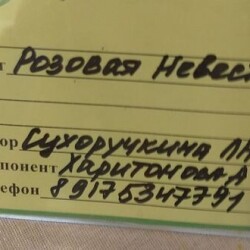 т Розовая Невес
ор Сухоручкина Л
понент Харитонова А
ефон 89175347791